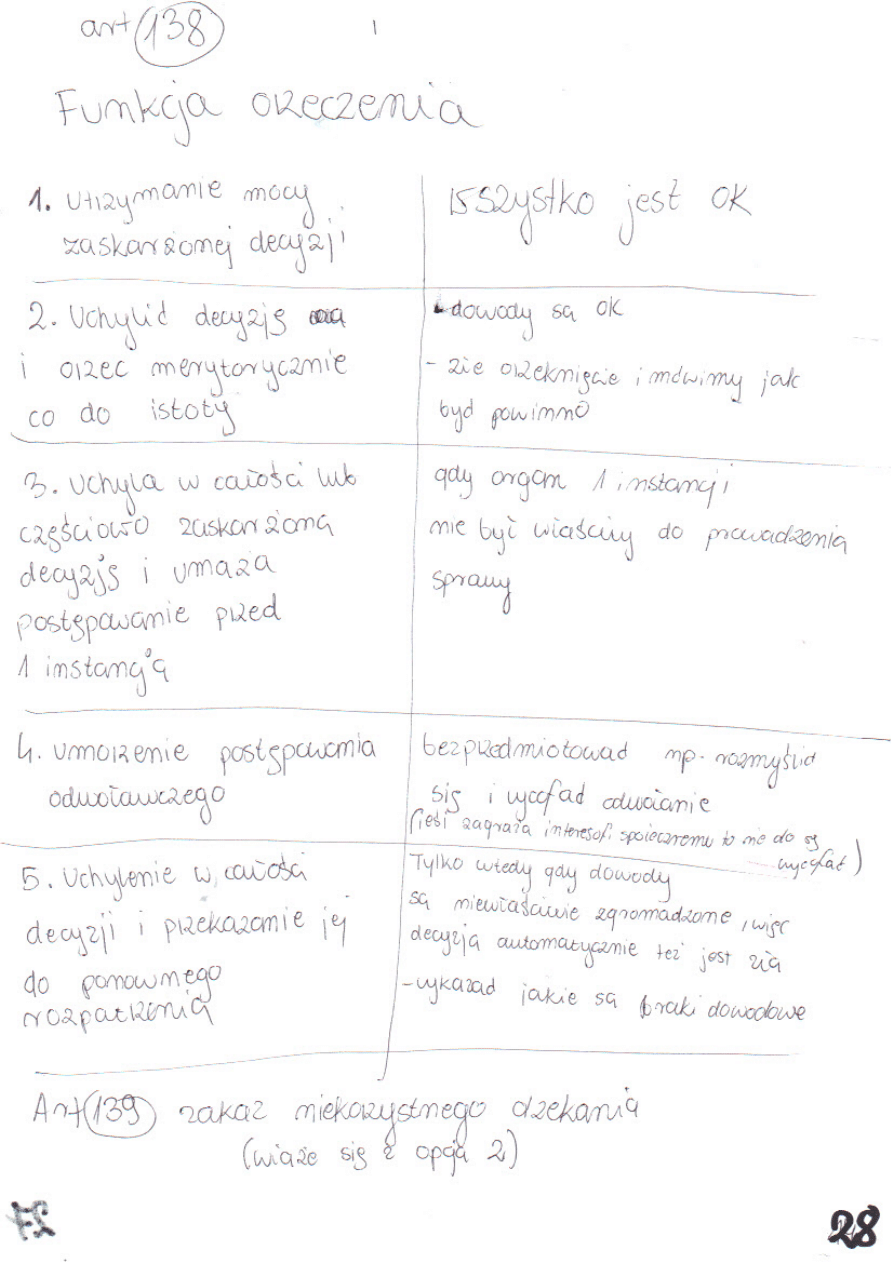 art 138
Funkcja orzeczenia
1. Utrzymanie mocy
zaskarżonej decyzji
Wszystko jest OK
2. Uchylić decyzję
i orzec merytorycznie
co do istoty
- dowody są OK
- złe orzeknięcie i mówimy jak
być powinno
3. Uchyla w całości lub
częściowo zaskarżoną
decyzję i umaża
postępowanie przed
1 instancją
gdy organ 1 instancji
nie był właściwy do prowadzenia
sprawy
4. Umorzenie postępowania
odwoławczego
bezprzedmiotować np. rozmyślić
się i wycofać odwołanie
(jeśli zagraża interesofi społecznemu to nie da się
wycofać)
5. Uchylenie w całości
decyzji i przekazanie jej
do ponownego
rozpatrzenia
Tylko wtedy gdy dowody
są niewłaściwie zgromadzone, więc
decyzja automatycznie też jest zła
- wykazać jakie są braki dowodowe
Art 139 zakaz niekorzystnego orzekania
(wiąże się z opcją 2)
28